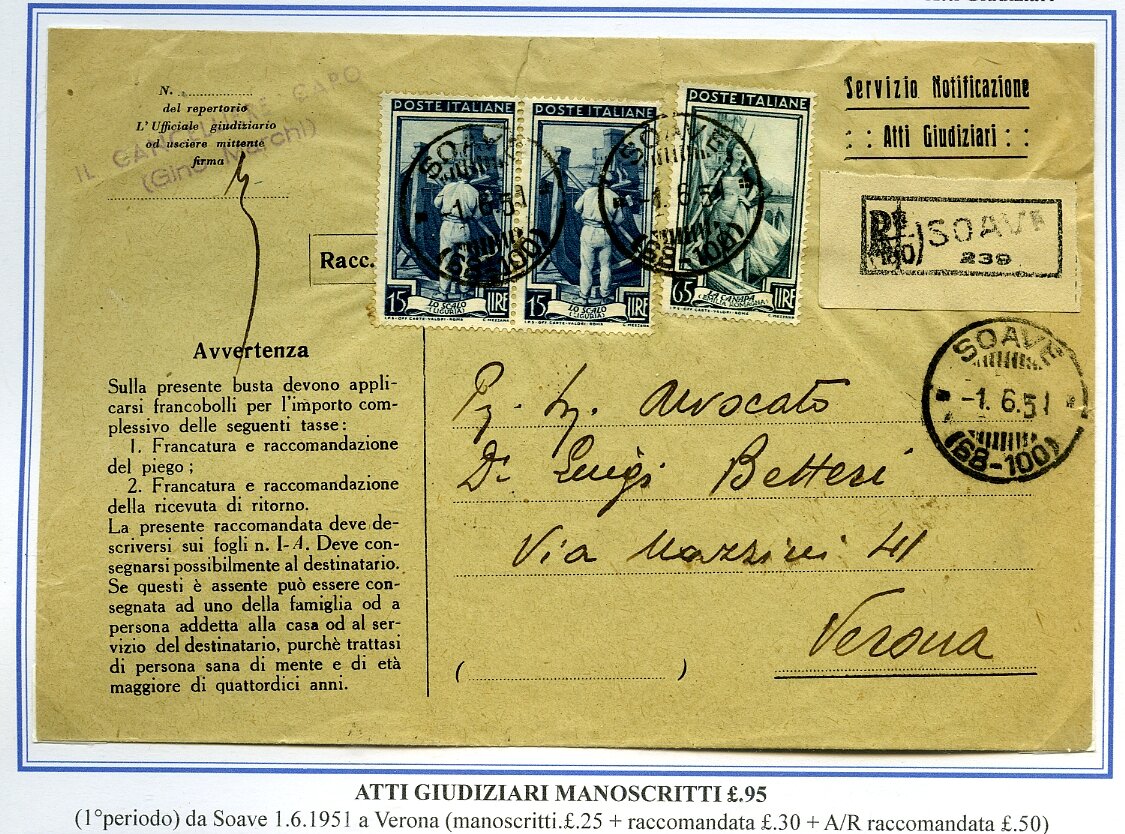 N. ..............
del repertorio
L'Ufficiale giudiziario
od usciere mittente
firma
IL CANCELLIERE CAPO
(Gino Marchi)
POSTE ITALIANE
15 LIRE
LO SCALO
(LIGURIA)
I.P.S.-OFF. CARTE-VALORI-ROMA
C. MEZZANA
POSTE ITALIANE
15 LIRE
LO SCALO
(LIGURIA)
I.P.S.-OFF. CARTE-VALORI-ROMA
C. MEZZANA
POSTE ITALIANE
65 LIRE
LA CANAPA
(EMILIA-ROMAGNA)
I.P.S.-OFF. CARTE-VALORI-ROMA
C. MEZZANA
SOAVE
-1.6.51
(68-100)
SOAVE
-1.6.51
(68-100)
Servizio Notificazione
: : Atti Giudiziari : :
R SOAVE
239
Racc.
SOAVE
-1.6.51
(68-100)
Avvertenza
Sulla presente busta devono appli-
carsi francobolli per l'importo com-
plessivo delle seguenti tasse:
1. Francatura e raccomandazione
del piego;
2. Francatura e raccomandazione
della ricevuta di ritorno.
La presente raccomandata deve de-
scriversi sui fogli n. I-A. Deve con-
segnarsi possibilmente al destinatario.
Se questi è assente può essere con-
segnata ad uno della famiglia od a
persona addetta alla casa od al ser-
vizio del destinatario, purchè trattasi
di persona sana di mente e di età
maggiore di quattordici anni.
Avvocato
Dr Luigi Betteri
Via Mazzini 41
Verona
(..............................)
ATTI GIUDIZIARI MANOSCRITTI £.95
(1°periodo) da Soave 1.6.1951 a Verona (manoscritti.£.25 + raccomandata £.30 + A/R raccomandata £.50)